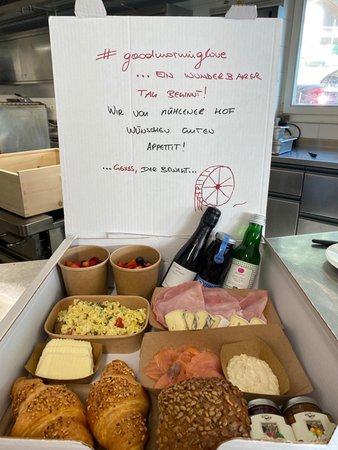 # goodmorninglove
... EIN WUNDERBARER
TAG BEGINNT!
WIR VOM MÜHLENER HOF
WÜNSCHEN GUTEN
APPETIT!
... GENUSS, DER BEWEGT...